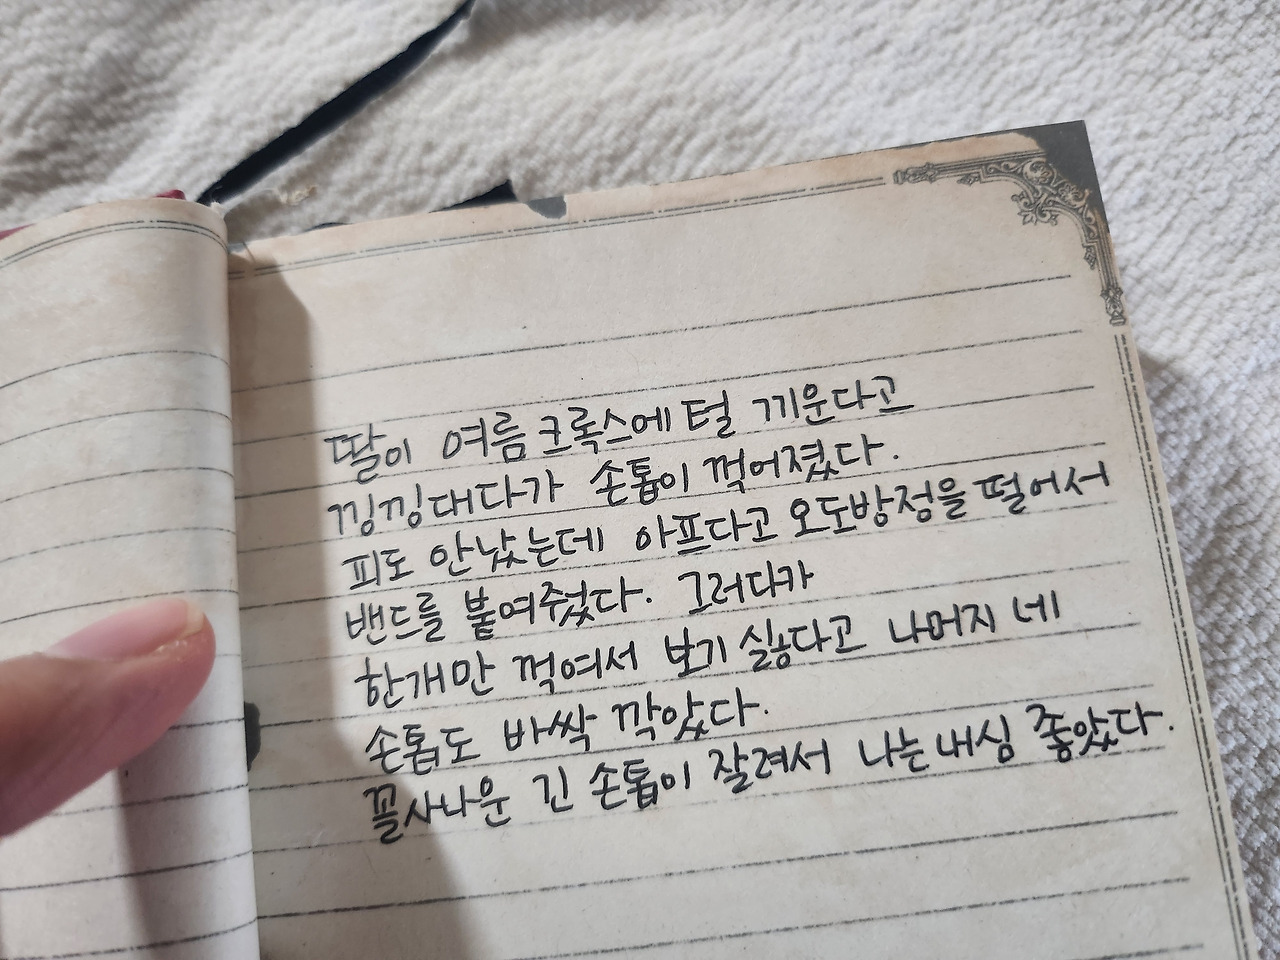 딸이 여름 크록스에 털 끼운다고
낑낑대다가 손톱이 꺾어졌다.
피도 안났는데 아프다고 오도방정을 떨어서
밴드를 붙여주었다. 그러다가
한개만 꺽여서 보기 싫다고 나머지 네
손톱도 바싹 깍았다.
꼴사나운 긴 손톱이 잘려서 나는 내심 좋았다.